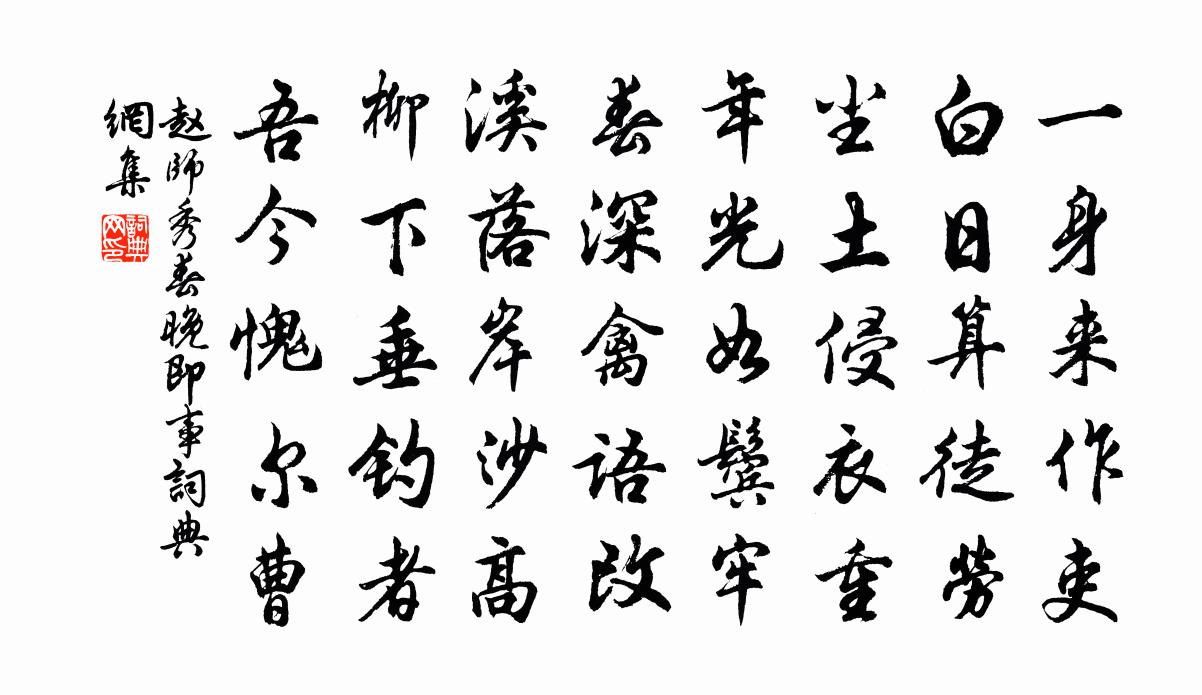 一身来作吏
白日算徒劳
尘土侵衣重
年光如鬓牢
春深禽语改
溪落岸沙高
柳下垂钓者
吾今愧尔曹
赵師秀春晚即事詞典
網集
詞典网印